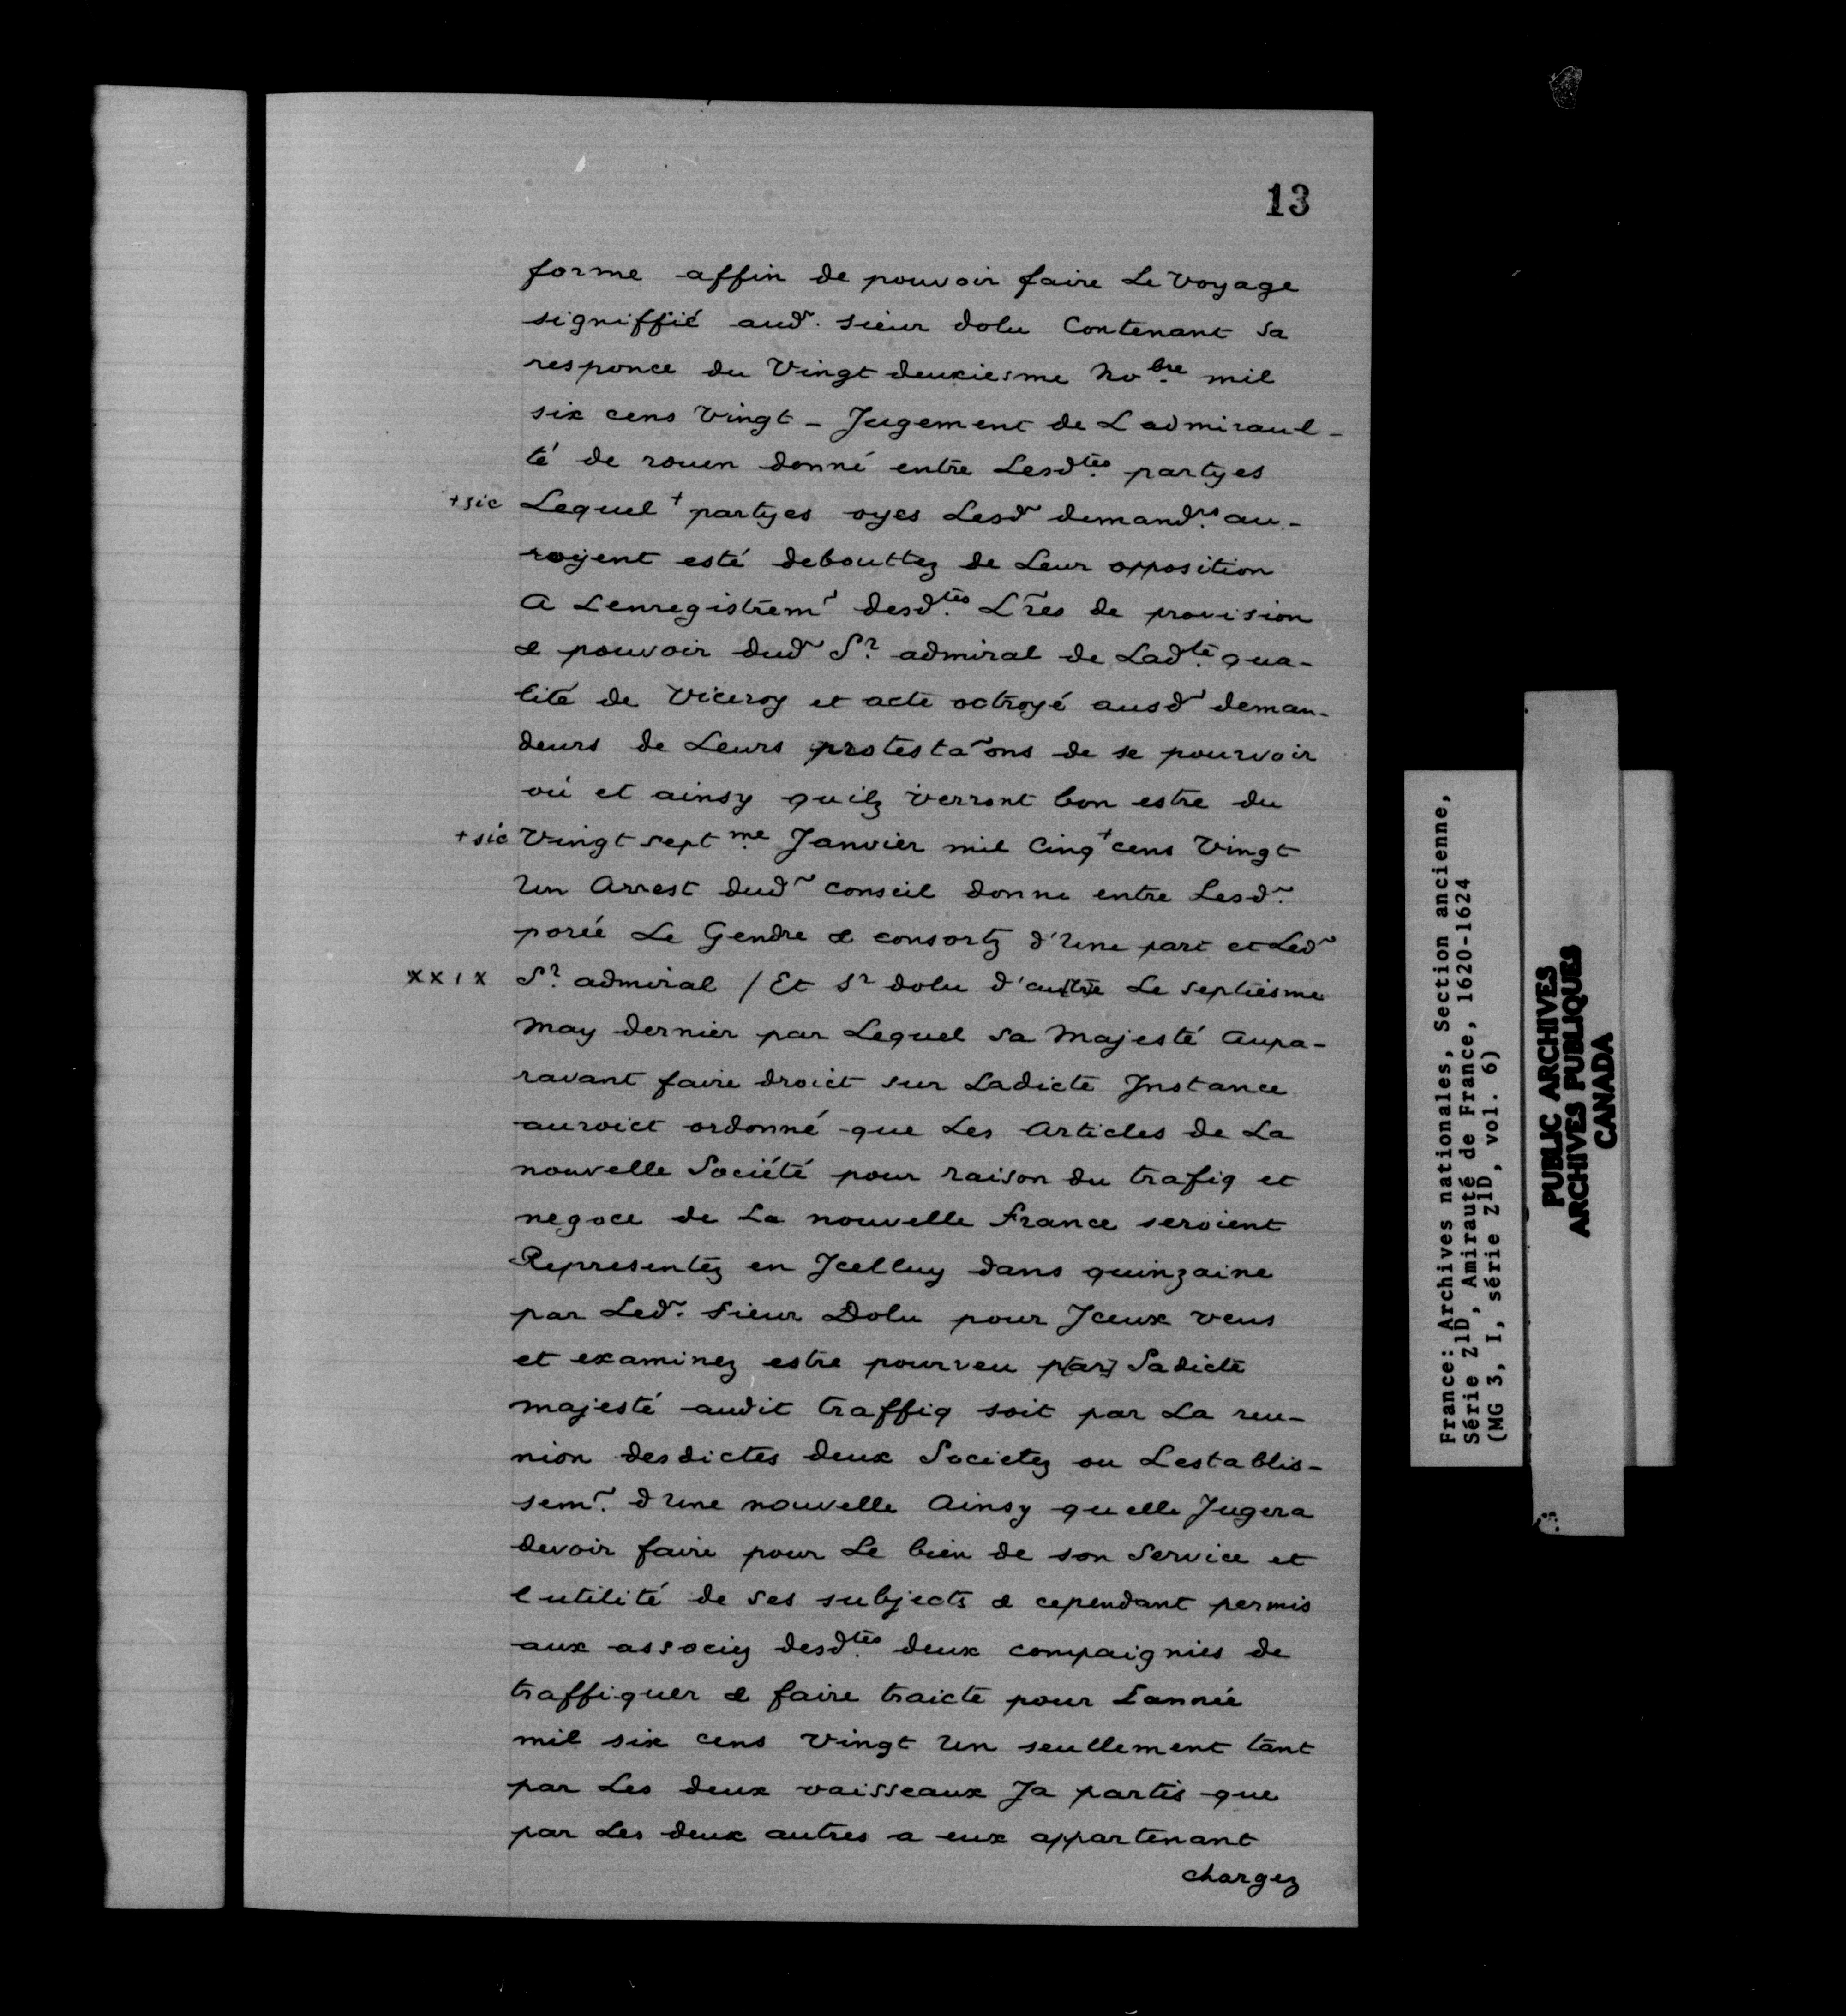 13
forme affin de pouvoir faire Le Voyage
signiffié aud. sieur dolu Contenant sa
responce du Vingt deuxiesme Nobre mil
six cens Vingt - Jugement de Ladmiraul-
té de rouen donné entre Lesdtes partyes
+ sic Lequel + partyes oyes Lesd demandrs au-
royent esté debouttez de Leur opposition
A Lenregistremt desdtes Lres de provision
& pouvoir dud Sr admiral de Ladte qua-
lité de Viceroy et acte octroyé ausd deman-
deurs de Leurs protestaons de se pourvoir
où et ainsy quilz verront bon estre du
+ sic Vingt septme Janvier mil Cinq + cens Vingt
Un Arrest dud conseil donne entre Lesd.
porée Le Gendre & consortz d'Une part et Led
XXIX Sr admiral / Et Sr dolu d'autre Le septiesme
May dernier par Lequel sa Majesté Aupa-
ravant faire droict sur Ladicte Instance
auroict ordonné que Les Articles de La
nouvelle Société pour raison du trafiq et
negoce de La nouvelle france seroient
Representéz en Jcelluy dans quinzaine
par Led. sieur Dolu pour Jceux veus
et examinez estre pourveu p[ar] Sadicte
majesté audit traffiq soit par La reu-
nion desdictes deux Societez ou Lestablis-
semt. dUne nouvelle Ainsy quelle Jugera
devoir faire pour Le bien de son Service et
lutilité de ses subjects & cependant permis
aux associez desdtes deux compaignies de
traffiquer & faire traicte pour Lannée
mil six cens Vingt Un seullement tant
par Les deux vaisseaux Ja partis que
par Les deux autres a eux appartenant
chargez
France: Archives nationales, Section ancienne,
Série Z1D, Amirauté de France, 1620-1624
(MG 3, I, série Z1D, vol. 6)
PUBLIC ARCHIVES
ARCHIVES PUBLIQUES
CANADA